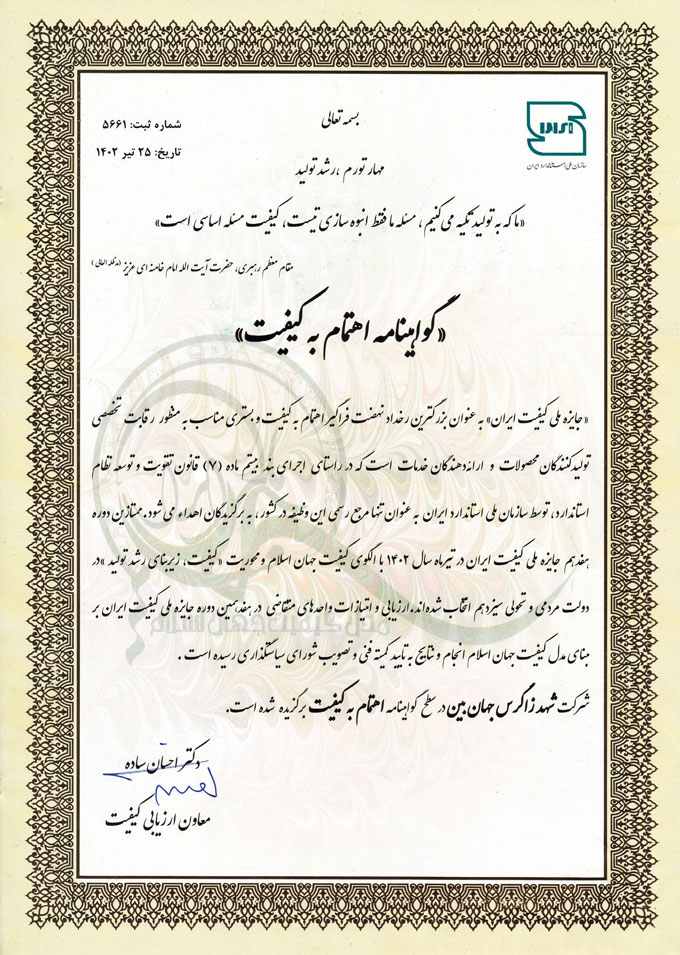 بسمه تعالی
شماره ثبت: ۵۶۶۱
تاریخ: ۲۵ تیر ۱۴۰۲
سازمان ملی استاندارد ایران
مهار تورم ،رشد تولید
«ما که به تولید تکیه می کنیم ، مسئله ما فقط انبوه سازی نیست، کیفیت مسئله اساسی است»
مقام معظم رهبری، حضرت آیت الله امام خامنه ای عزیز (مدظله العالی)
«گواهینامه اهتمام به کیفیت»
«جایزه ملی کیفیت ایران» به عنوان بزرگترین رخداد نهضت فراگیر اهتمام به کیفیت و بستری مناسب به منظور رقابت تخصصی
تولیدکنندگان محصولات و ارائه‌دهندگان خدمات است که در راستای اجرای بند بیستم ماده (۷) قانون تقویت و توسعه نظام
استاندارد، توسط سازمان ملی استاندارد ایران به عنوان تنها مرجع رسمی این وظیفه در کشور، به برگزیدگان اهداء می شود. ممتازین دوره
هفدهم جایزه ملی کیفیت ایران در تیرماه سال ۱۴۰۲ با الگوی کیفیت جهان اسلام و محوریت «کیفیت، زیربنای رشد تولید »در
دولت مردمی و تحولی سیزدهم انتخاب شده‌اند.ارزیابی و امتیازات واحدهای متقاضی در هفدهمین دوره جایزه ملی کیفیت ایران بر
مبنای مدل کیفیت جهان اسلام انجام و نتایج به تایید کمیته فنی و تصویب شورای سیاستگذاری رسیده است .
شرکت شهد زاگرس جهان بین در سطح گواهینامه اهتمام به کیفیت برگزیده شده است.
دکتر احسان ساده
معاون ارزیابی کیفیت
مدل کیفیت جهان اسلام